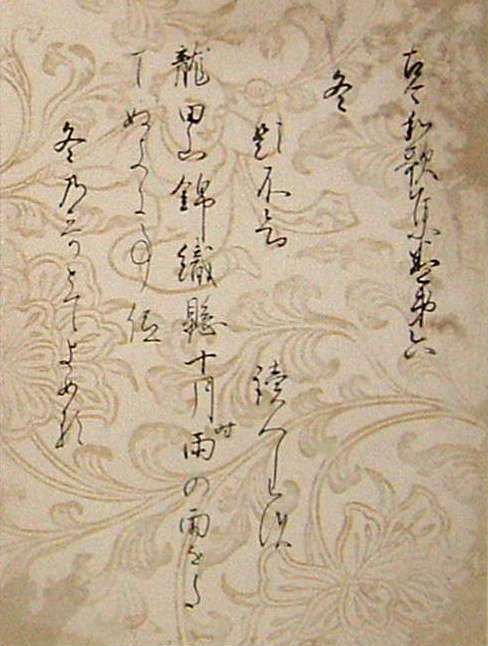 古今和歌集巻第六
冬
題不知　讀人しらす
龍田山錦織懸十月時雨の雨をた
てぬきに
冬乃うたとてよめる